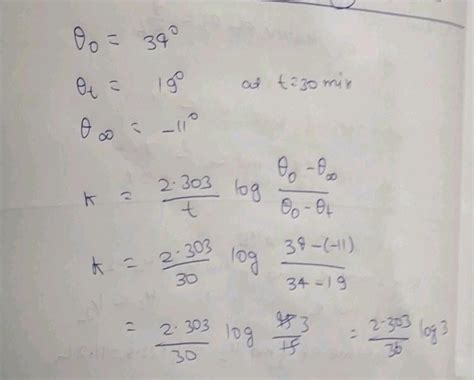 θ₀ = 34°
θₜ = 19° at t=30 min
θ∞ = -11°
K = 2.303/t log (θ₀ - θ∞)/(θ₀ - θₜ)
K = 2.303/30 log (34-(-11))/(34-19)
= 2.303/30 log 45 3/15 = 2.303/30 log 3